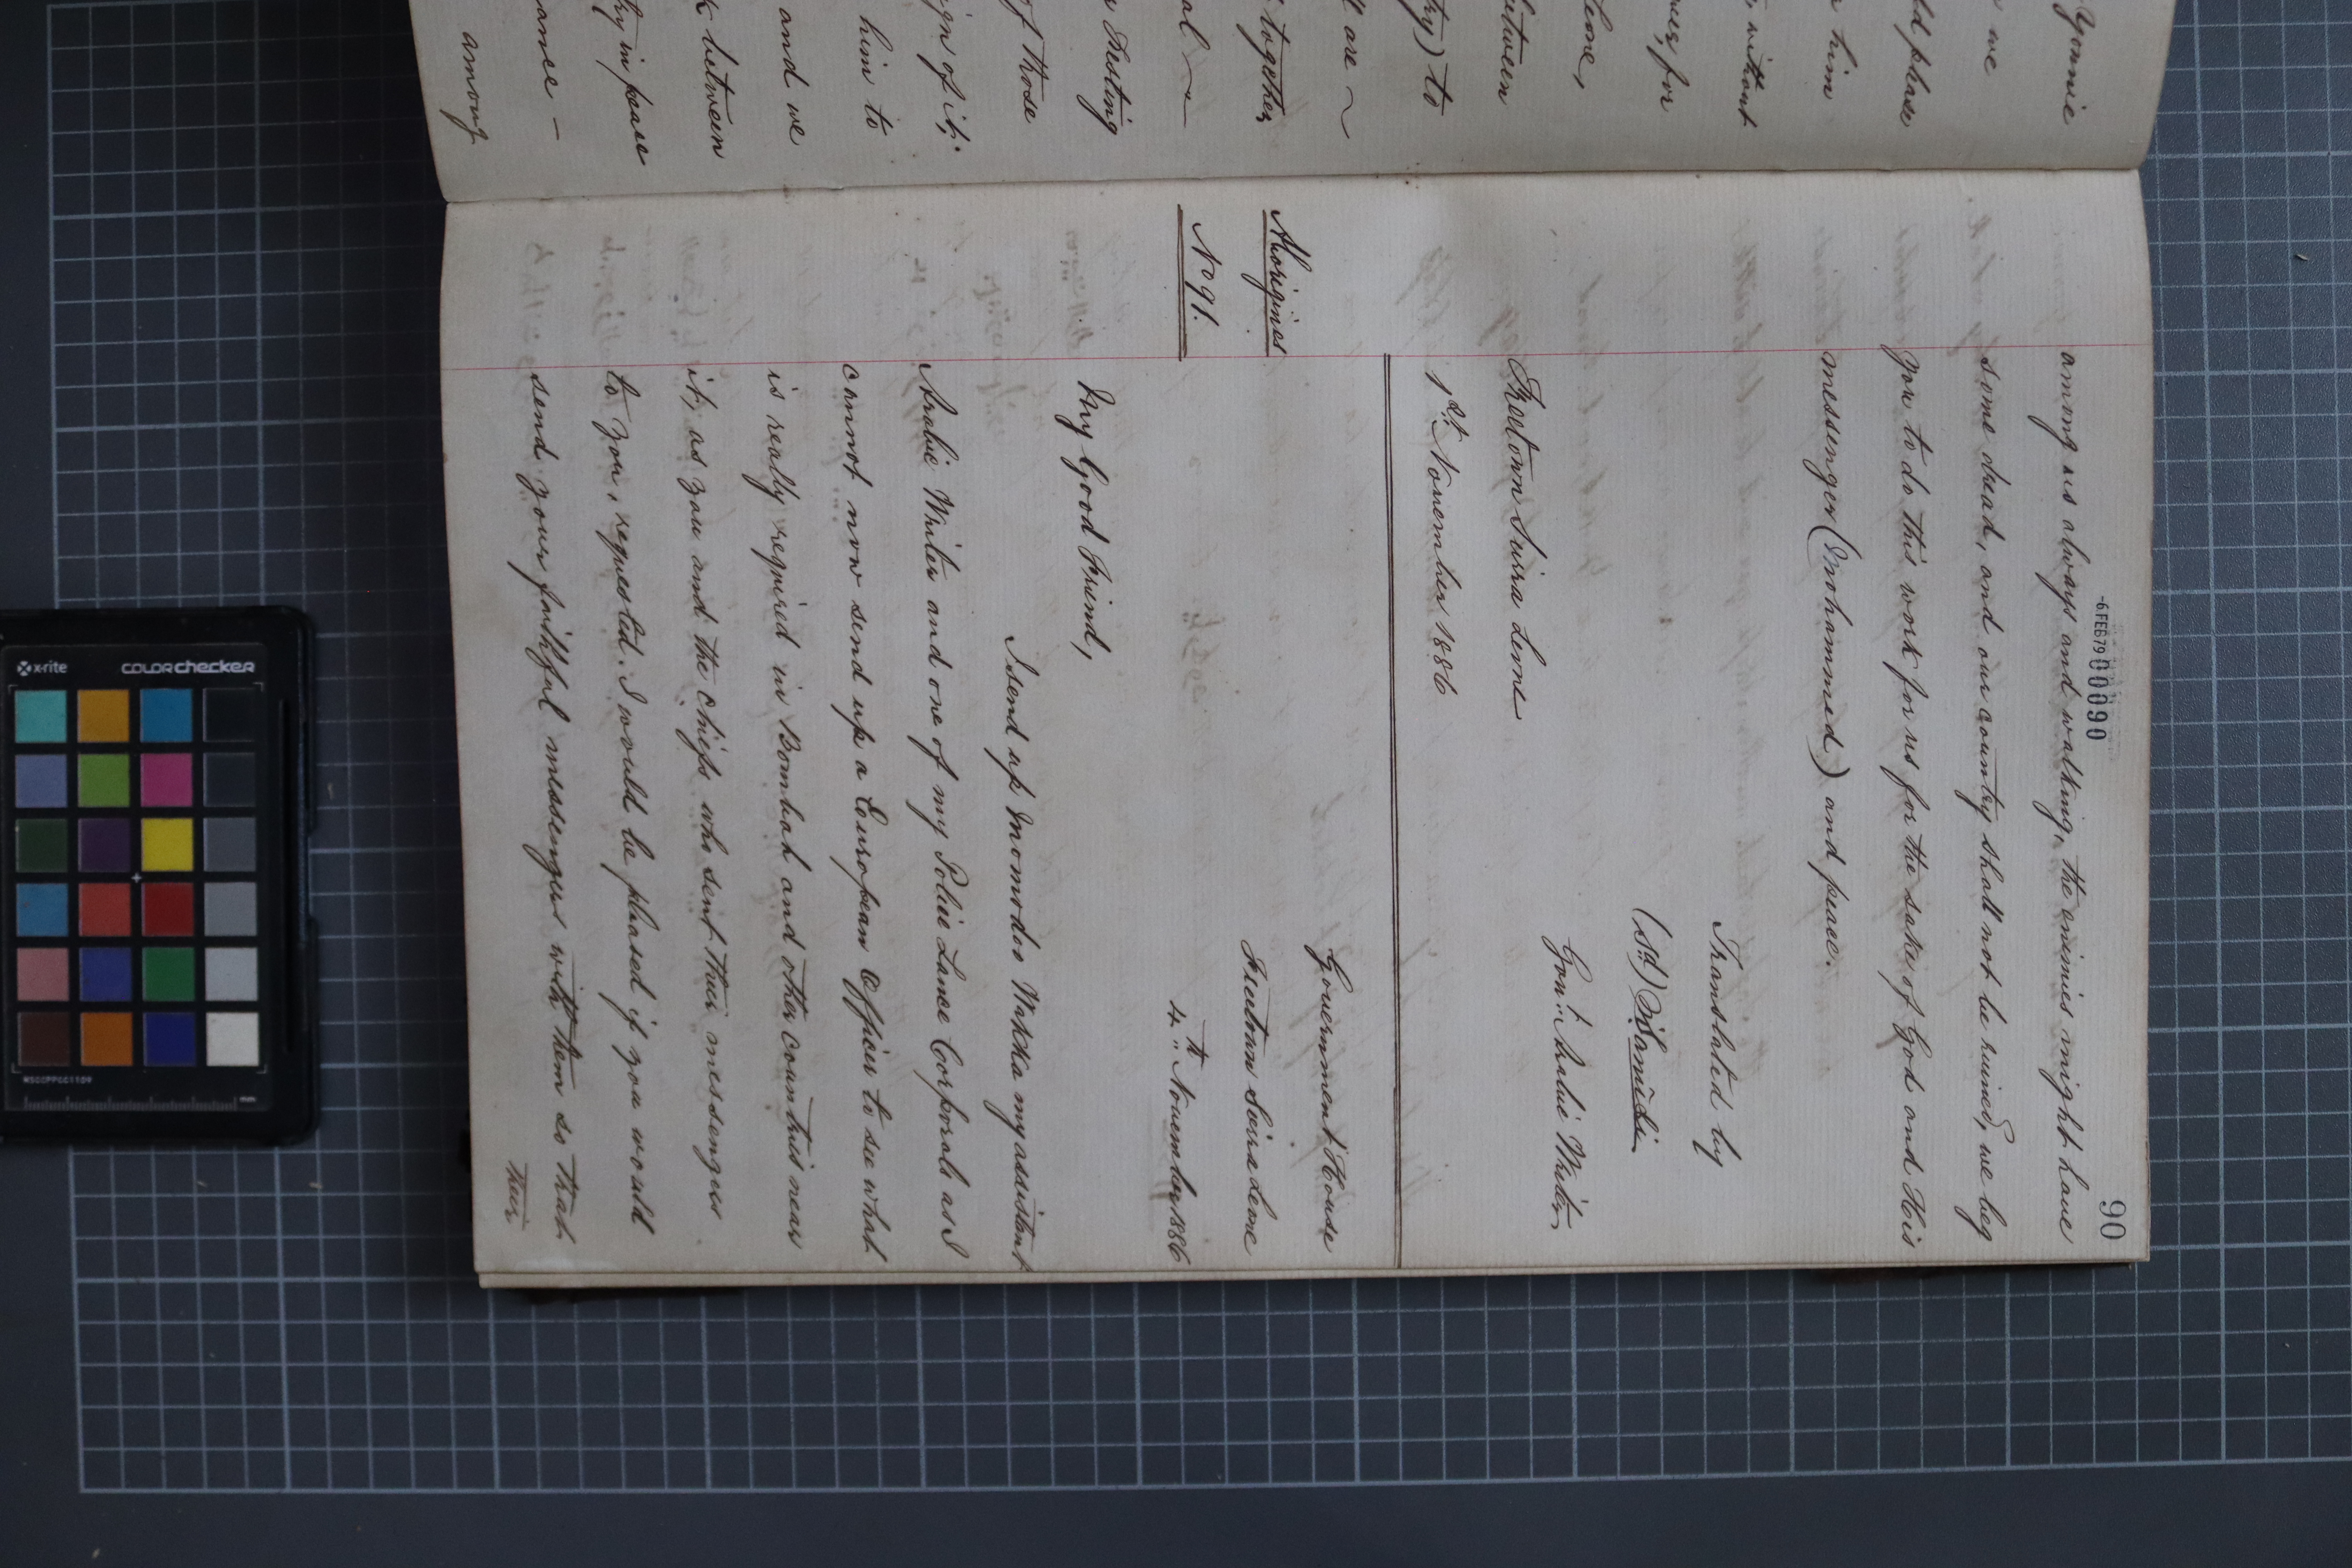 Yonnie
we
ld please
him
, without
ues, for
Leone,
between
try) to
ll are ~
together,
al ~
Festing
of those
ign of it;
him to
and we
k between
ry in peace
ance -
among
90
-6 FEB 79 000090
among us always and walking, the enimies might have
some dread, and our country shall not be ruined, we beg
you to do this work for us for the sake of God and His
messenger (Mohammed) and peace.
Translated by
(sd) Sanusi
Gov:t Arabic Writer,
Freetown Seirra Leone
1st November 1886
Aborigines
No 91.
Government House
Freetown Seirra Leone
4th November 1886
My Good Friend,
I send up Momodoo Wakka my assistant
Arabic Writer and one of my Police Lance Corporals as I
cannot now send up a European Officer to see what
is really required in Bombah and other countries near
it, as you and the chiefs who sent their messengers
to you, requested. I would be pleased if you would
send your faithful messengers with them so that
their
x-rite
colorchecker
MSCCPPCC1109
mm